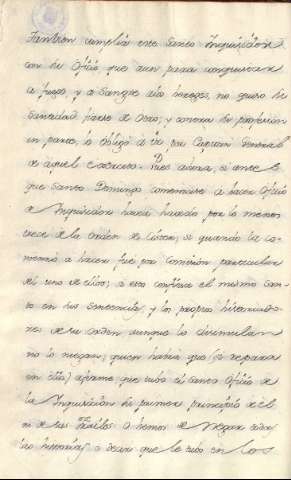 Tambien cumplia este Santo Inquisidor
con su Oficio que aun para conquistar
a fuego, y a Sangre los hereges, no quiso su
Santidad fuese de otro, y contra su profession
en parte, lo obligó a ir por Capitan General
de aquel exercito. Pues ahora, si antes
que Santo Domingo comenzase a hacer Oficio
de Inquisidor havia havido por lo menos
trece de la orden de Cister, si quando la co-
menzó a hacer fue por Comision particular
del uno de ellos; si esto confiesa el mismo San-
to en sus Sentencias, y los propios historiado-
res de su orden aunque lo disimulan
no lo niegan; quien havrá que (si repara
en ello) afirme que tubo el Santo Oficio de
la Inquisicion su primer principio de él
ni de sus frailes? O hemos de negar todas
las historias, o decir que le tubo en los